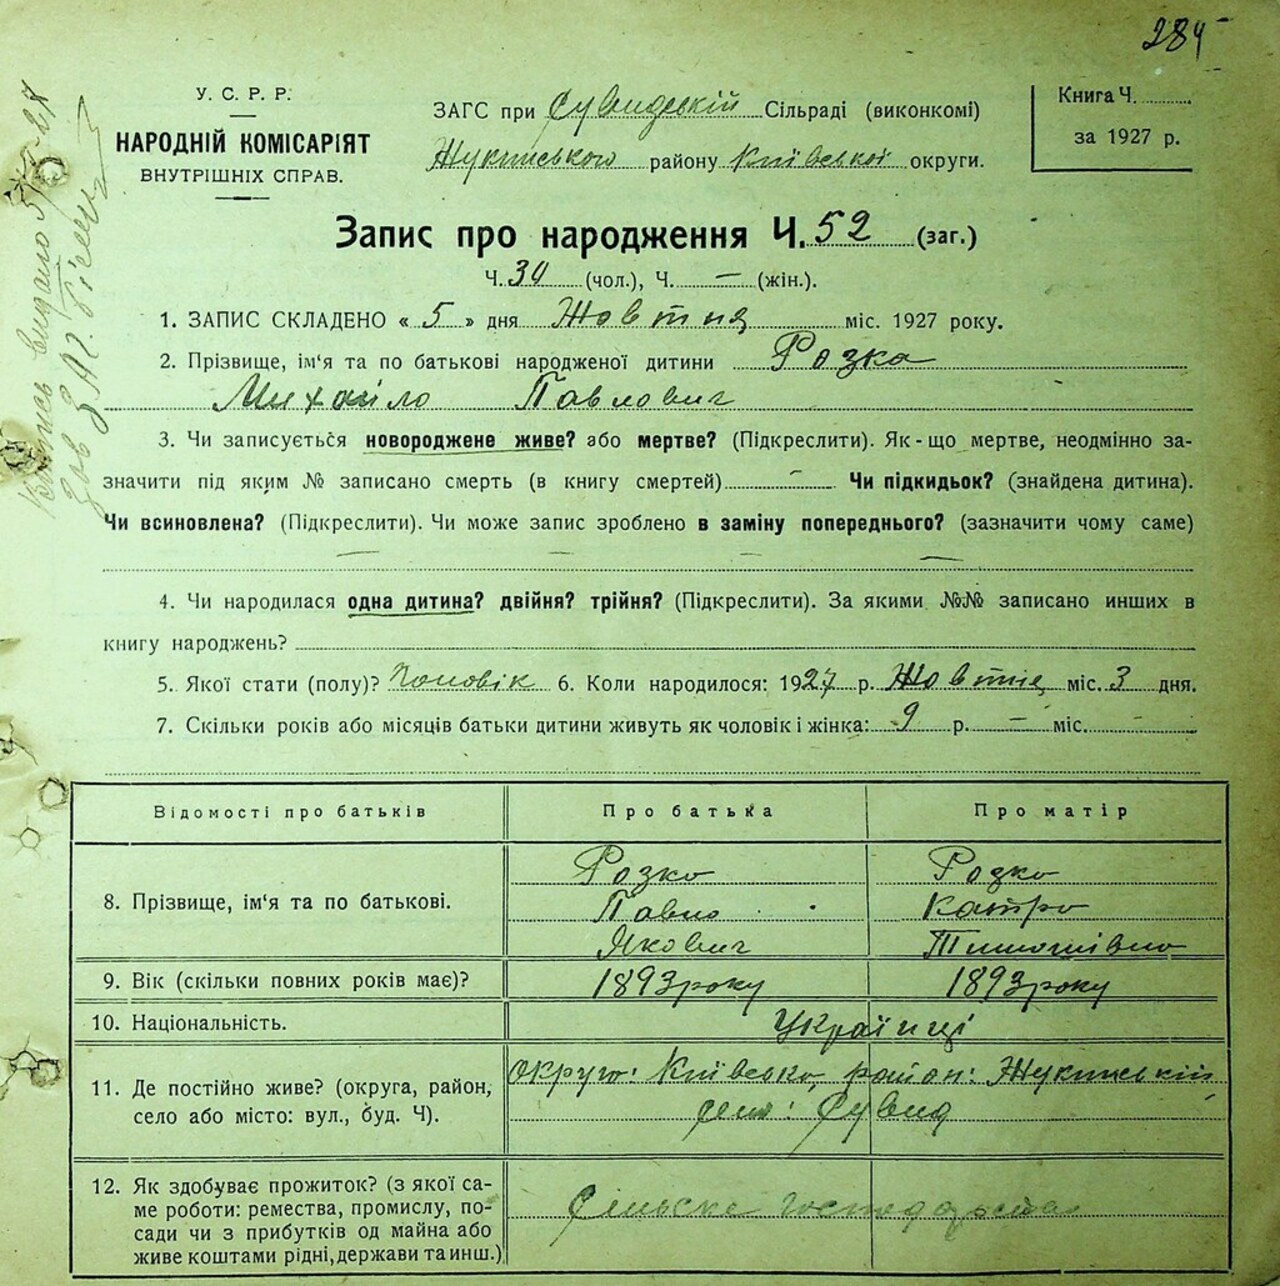 284
У. С. Р. Р.
НАРОДНІЙ КОМІСАРІЯТ
ВНУТРІШНІХ СПРАВ.
ЗАГС при Сувидській Сільраді (виконкомі)
Жукинського району Київської округи.
Книга Ч.
за 1927 р.
Запис про народження Ч. 52 (заг.)
Ч. 34 (чол.), Ч. — (жін.).
1. ЗАПИС СКЛАДЕНО « 5 » дня Жовтня міс. 1927 року.
2. Прізвище, ім‘я та по батькові народженої дитини Розка
Михайло Павлович
3. Чи записується новороджене живе? або мертве? (Підкреслити). Як-що мертве, неодмінно за-
значити під яким № записано смерть (в книгу смертей) — Чи підкидьок? (знайдена дитина).
Чи всиновлена? (Підкреслити). Чи може запис зроблено в заміну попереднього? (зазначити чому саме)
— — — —
4. Чи народилася одна дитина? двійня? трійня? (Підкреслити). За якими №№ записано инших в
книгу народжень?
5. Якої стати (полу)? Чоловік 6. Коли народилося: 1927 р. Жовтня міс. 3 дня.
7. Скільки років або місяців батьки дитини живуть як чоловік і жінка: 9 р. — міс. —
Відомості про батьків Про батька Про матір
8. Прізвище, ім‘я та по батькові.
Розко
Павло
Якович
Розко
Катря
Тимошівна
9. Вік (скільки повних років має)? 1893 року 1893 року
10. Національність. Українці
11. Де постійно живе? (округа, район,
село або місто: вул., буд. Ч).
округа: Київська, район: Жукинський,
село: Сувид
12. Як здобуває прожиток? (з якої са-
ме роботи: ремества, промислу, по-
сади чи з прибутків од майна або
живе коштами рідні, держави та инш.)
Сільське господарство
Випись видано
Зав ЗАГ.